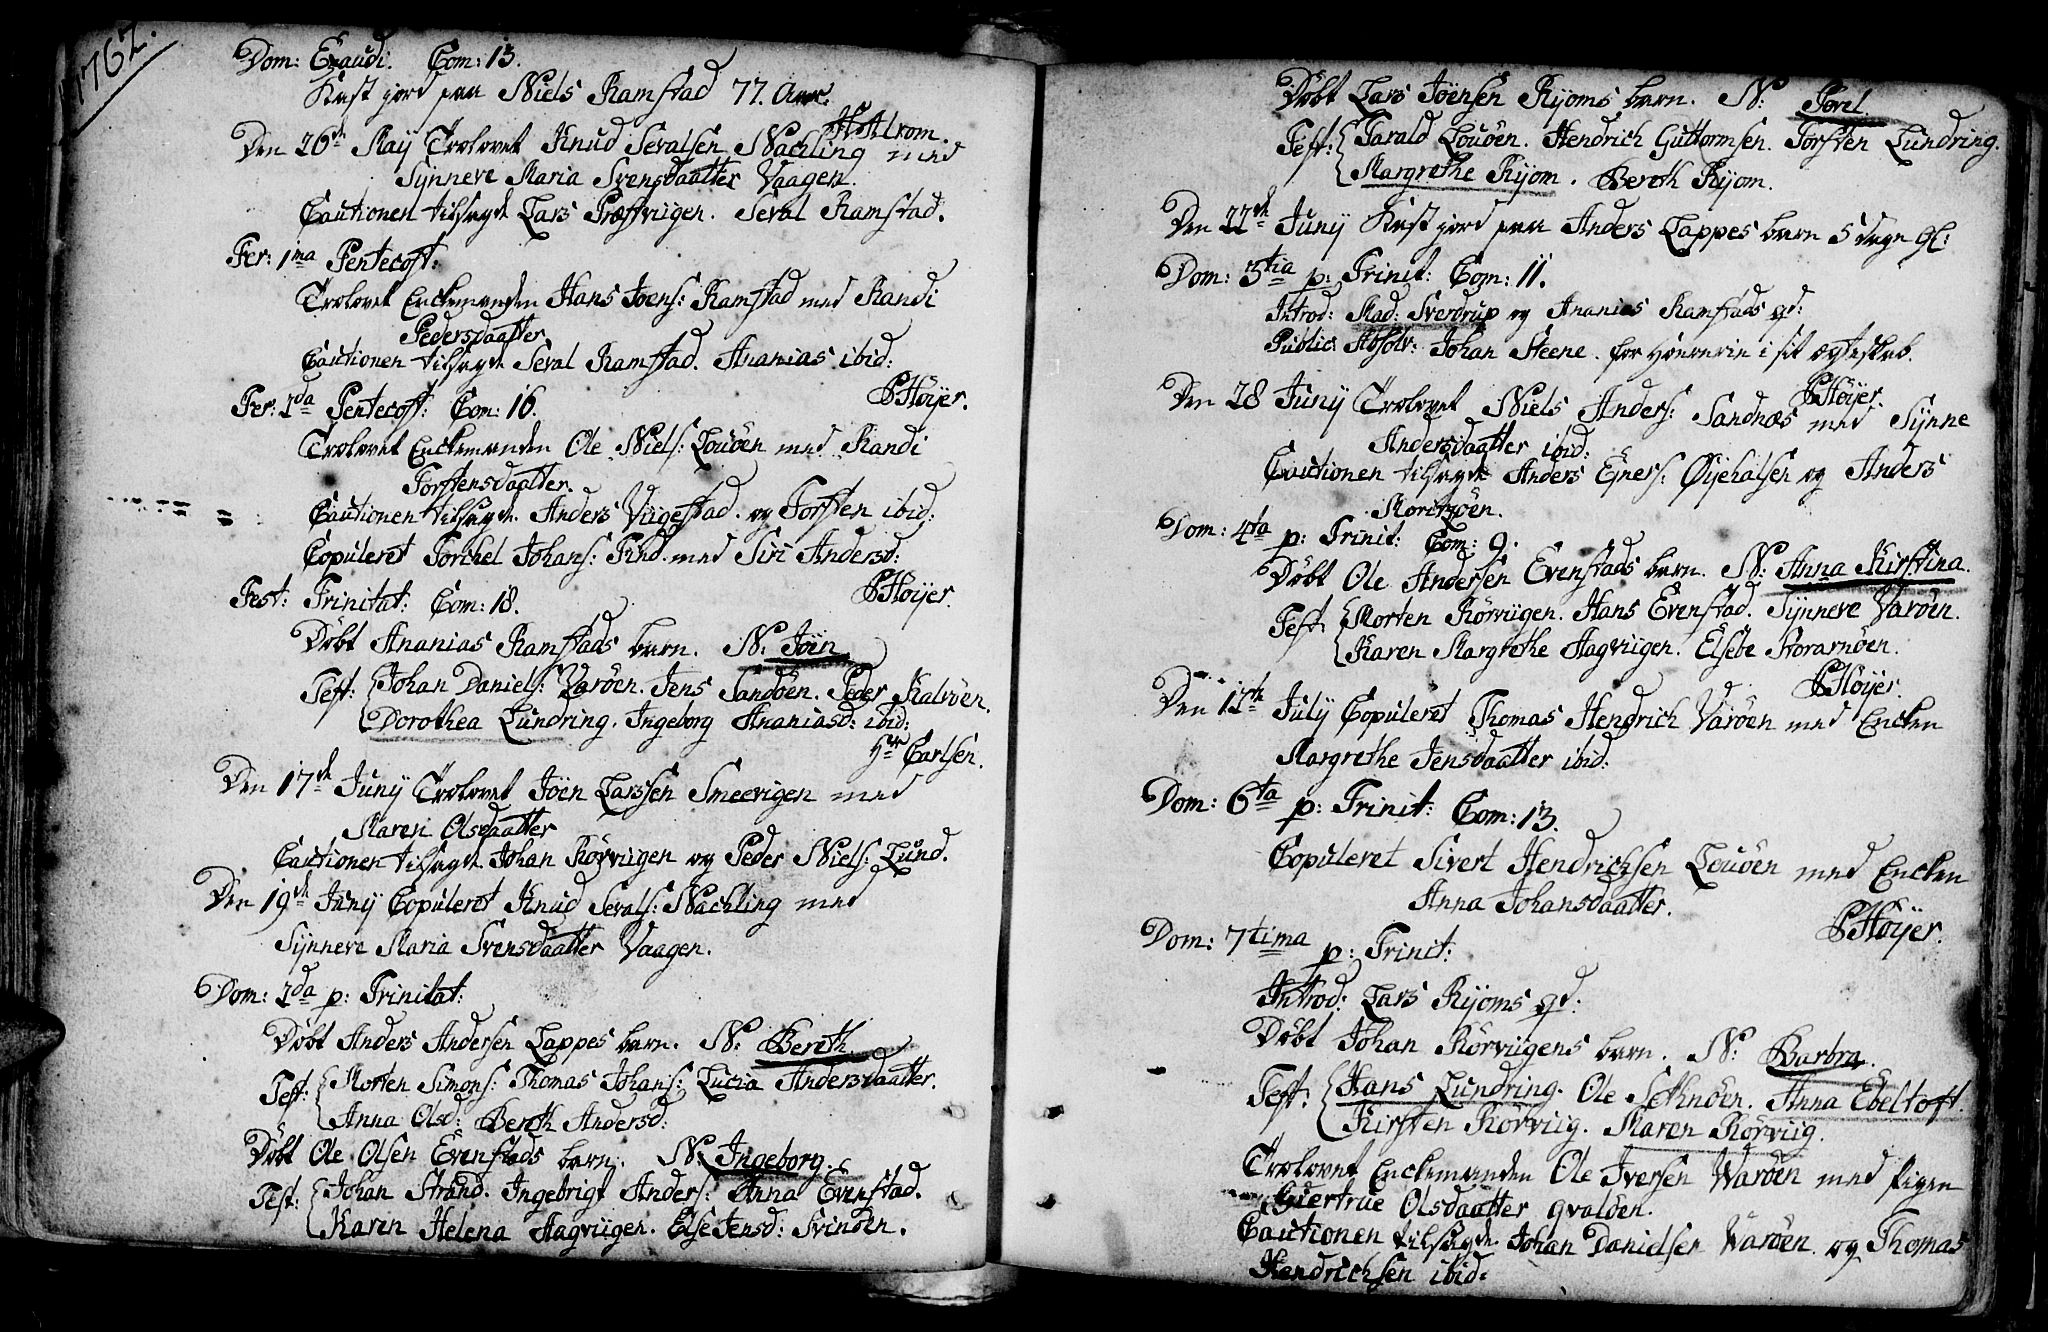 1762.
Dom: Exaudi. Com: 13.
Kast jord paa Niels Ramstad 77. Aar.
HAtrom.
Den 26de May Trolovet Knud Sevalsen Nachling med
Synneve Maria Svensdaatter Vaagen.
Cautionen tilsagde Lars Præstviigen. Seval Ramstad.
Fer: 1ma Pentecost:
Trolovet Enckemanden Hans Joens: Ramstad med Randi
Pedersdaatter
Cautionen tilsagde Seval Ramstad. Ananias ibid:
PHöijer.
Fer: 2da Pentecost: Com: 16.
Trolovet Enckemanden Ole Niels: Louöen med Randi
Torstensdaatter.
Cautionen tilsagde Anders Viigestad. og Torsten ibid:
Copuleret Torchel Johans: med Siri Andersd:
PHöijer.
Fest: Trinitat: Com: 18.
Döbt Ananias Ramstads barn. N: Joen
Test: Johan Daniels: Varöen. Jens Sandöen. Peder Kalvöen.
Dorothea Lundring. Ingeborg Ananiasd: ibid:
Hr Carlsen.
Den 17de Juny Trolovet Joen Larssen Smeevigen med
Maren Olsdaatter
Cautionen tilsagde Johan Rörviigen og Peder Niels: Lund.
Den 19de Juny Copuleret Knud Sevals: Nachling med
Synneve Maria Svensdaatter Vaagen.
Dom: 2da p: Trinitat:
Döbt Anders Andersen Lappes barn. N: Bereth
Test: Morten Simons: Thomas Johans: Lucia Andersdaatter.
Anna Olsd: Bereth Andersd:
Döbt Ole Olsen Evenstads barn. N: Ingeborg.
Test: Johan Strand. Ingebrigt Anders: Anna Evenstad.
Karen Helena Hagviigen. Else Jensd: Svinöen.
Döbt Lars Joensen Ryoms barn. N: Porel.
Test: Tarald Louöen. Hendrich Guttormsen. Torsten Lundring.
Margrethe Ryom. Bereth Ryom.
Den 22de Juny Kast jord paa Anders Lappes barn 5 dage gl:
Dom: 3tia p: Trinit: Com: 11.
Introd: Mad: Sverdrup og Ananias Ramstads qd:
Public: Absolv: Johan Steene. for Hoererie i sit ægteskab.
PHöijer.
Den 28 Juny Trolovet Niels Anders: Sandnæs med Synne
Andersdaatter ibid:
Cautionen tilsagde Anders Ejners: Øyehalsen og Anders
Moritzöen.
Dom: 4ta p: Trinit: Com: 9.
Döbt Ole Andersen Evenstads barn. N: Anna Kirstina.
Test: Morten Rörviigen. Hans Evenstad. Synneve Varöen.
Karen Margrethe Hagviigen. Elsebe Storarnöen.
PHöijer.
Den 12te July Copuleret Thomas Hendrich Varöen med Encken
Margrethe Jensdaatter ibid:
Dom: 6ta p: Trinit: Com: 13.
Copuleret Sivert Hendrichsen Louöen med Encken
Anna Johansdaatter.
PHöijer.
Dom: 7tima p: Trinit:
Introd: Lars Ryoms qd:
Döbt Johan Rörviigens barn. N: Barbra.
Test: Hans Lundring. Ole Sethnöen. Anna Ebeltoft.
Kirsten Rörviig. Maren Rörviig.
Trolovet Enckemanden Ole Iversen Varöen med Pigen
Giertrue Olsdaatter Qvalöen.
Cautionen tilsagde Johan Danielsen Varöen. og Thomas
Hendrichsen ibid: